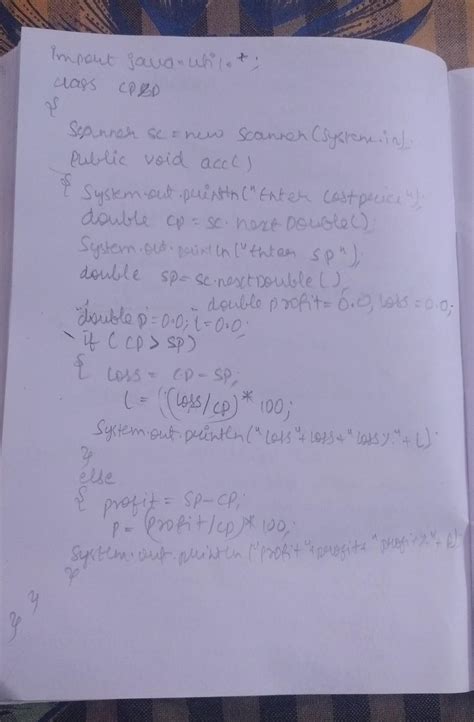 import java.util.*;
class CPSP
{
Scanner sc = new Scanner(System.in);
public void acc()
{ System.out.println("Enter Cost price");
double cp = sc.nextDouble();
System.out.println("Enter sp");
double sp = sc.nextDouble();
double profit = 0.0, loss = 0.0;
double p = 0.0; l = 0.0;
if (cp > sp)
{ loss = cp - sp;
l = ((loss/cp) * 100;
System.out.println("loss" + loss + "loss%" + l)
}
else
{ profit = sp - cp;
p = (profit/cp) * 100;
System.out.println("profit" + profit + "profit%" + p)
}
}
}